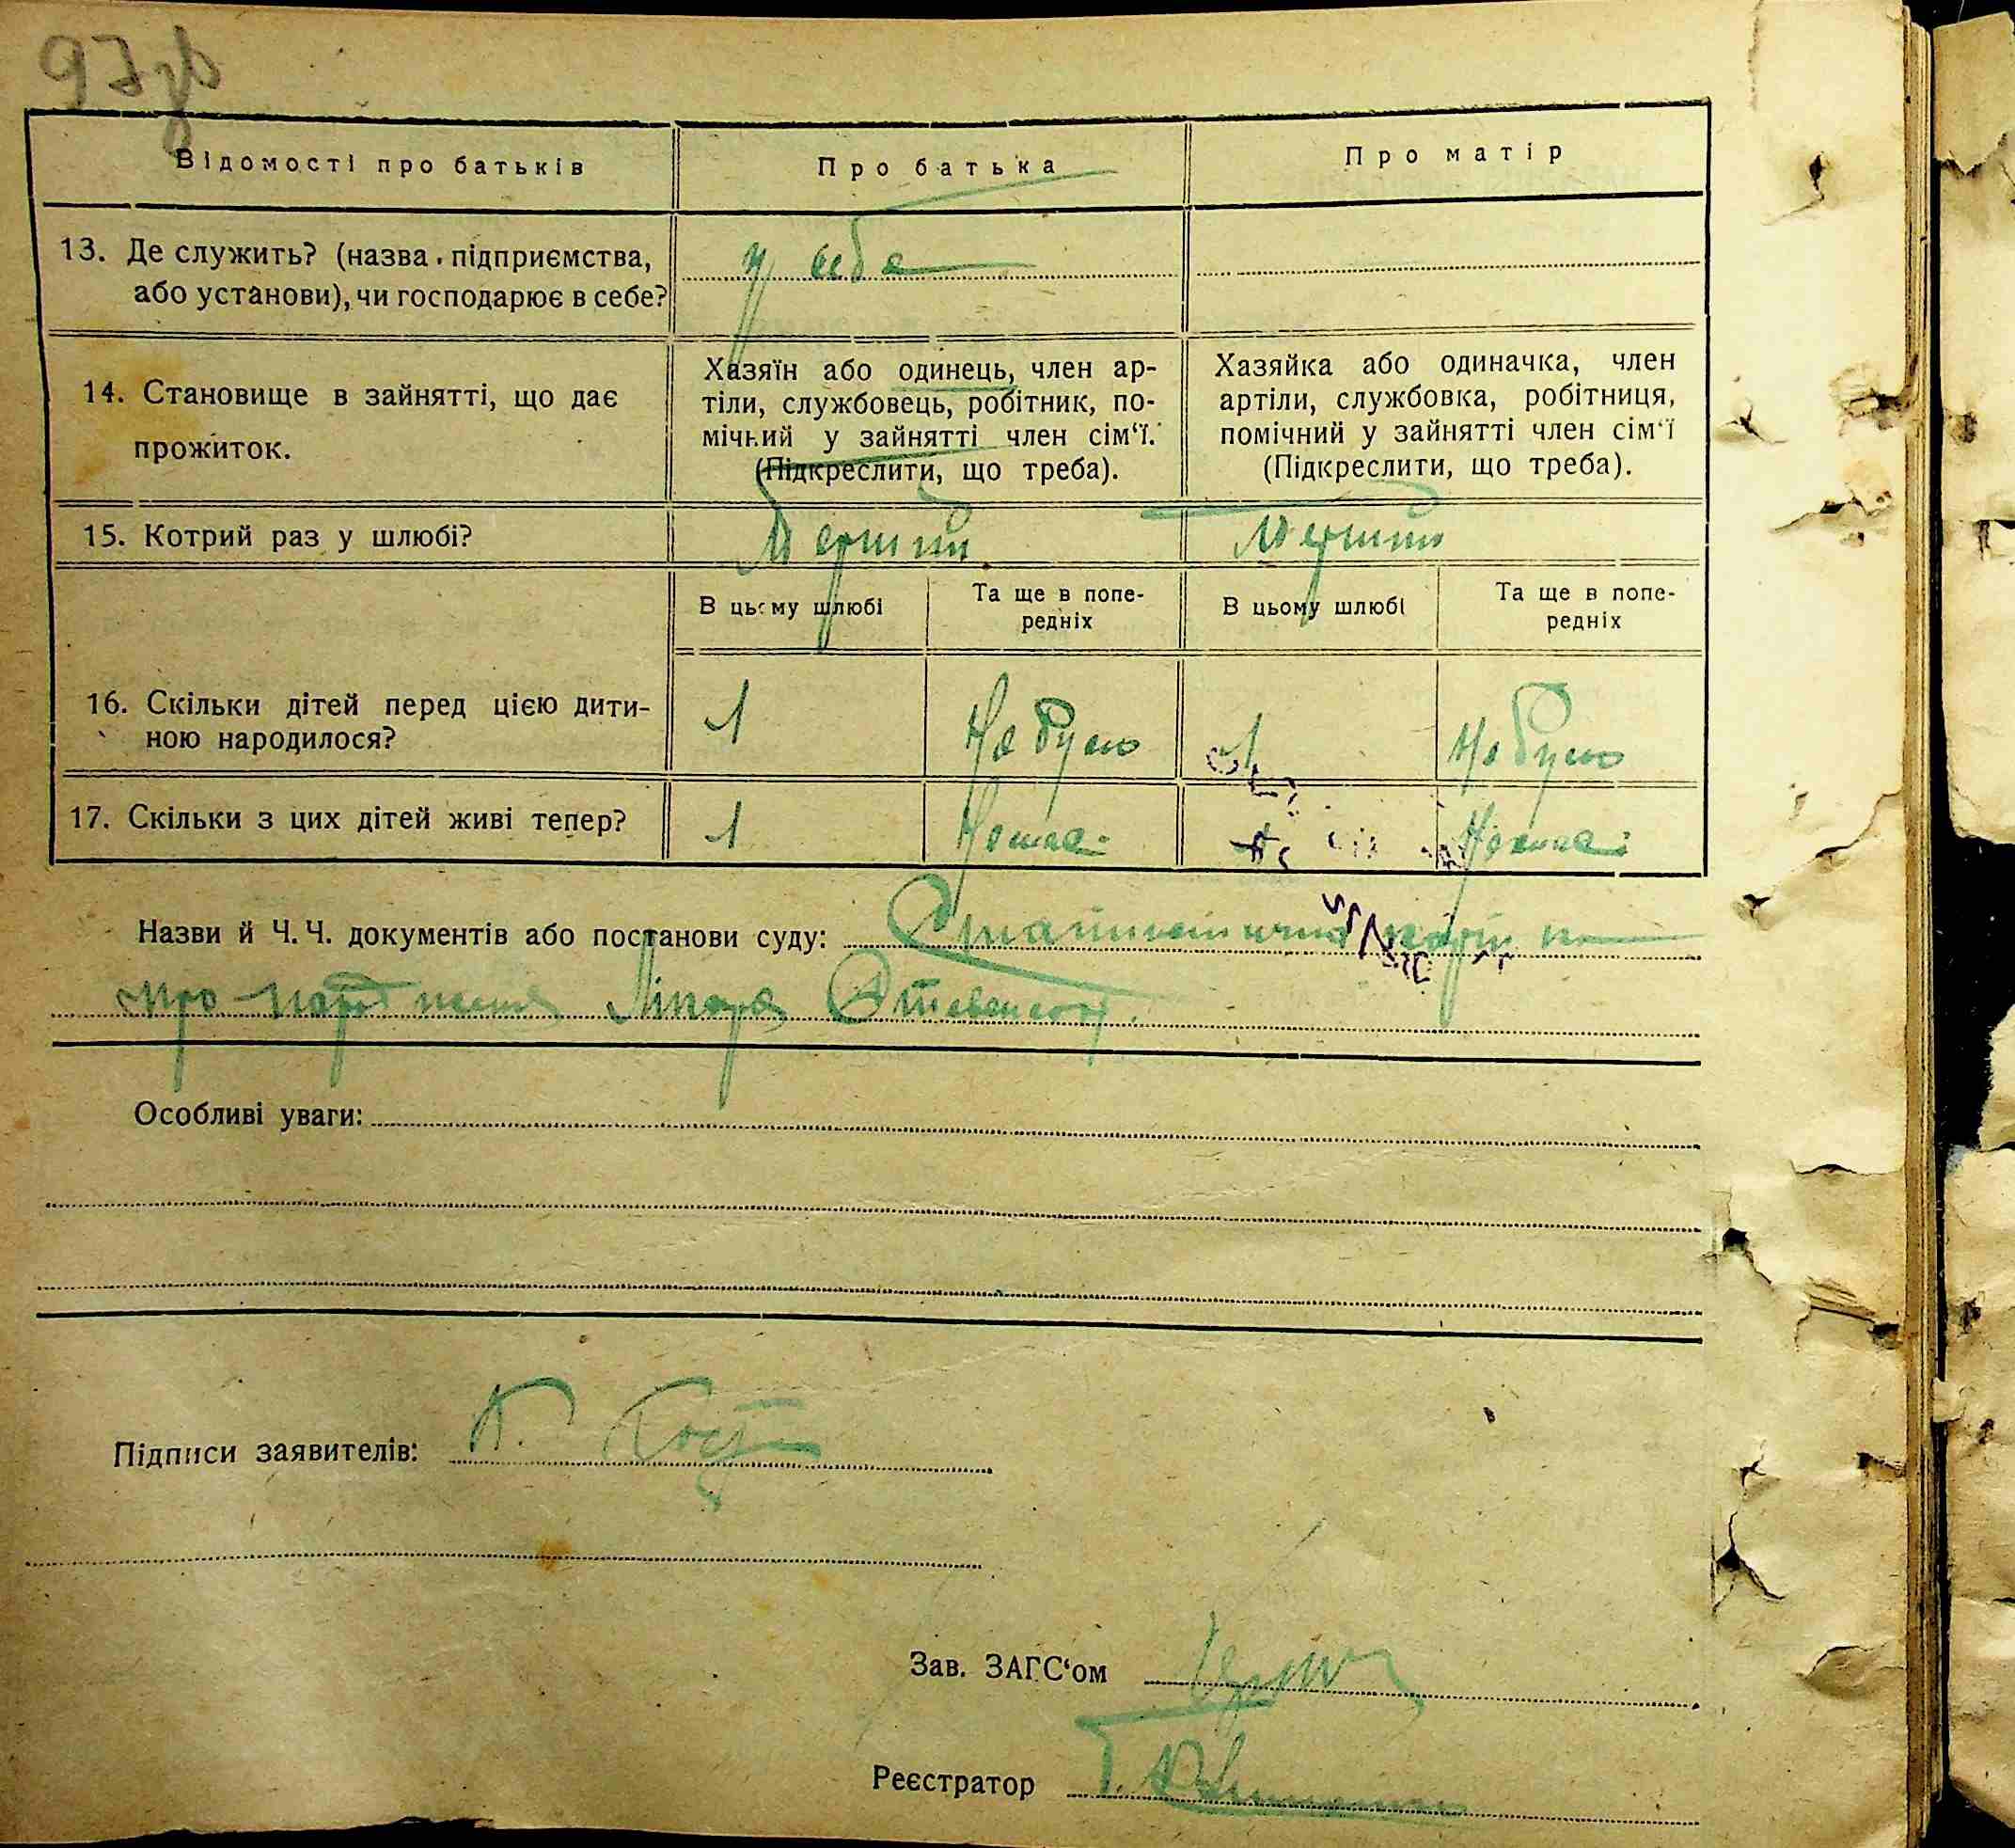 97зв
Відомості про батьків
Про батька
Про матір
13. Де служить? (назва підприємства,
або установи), чи господарює в себе?
у себе
14. Становище в зайнятті, що дає
прожиток.
Хазяїн або одинець, член ар-
тіли, службовець, робітник, по-
мічний у зайнятті член сім‘ї.
(Підкреслити, що треба).
Хазяйка або одиначка, член
артіли, службовка, робітниця,
помічний у зайнятті член сім‘ї
(Підкреслити, що треба).
15. Котрий раз у шлюбі?
Перший
Перший
В цьому шлюбі
Та ще в попе-
редніх
В цьому шлюбі
Та ще в попе-
редніх
16. Скільки дітей перед цією дити-
ною народилося?
1
Не було
1
Не було
17. Скільки з цих дітей живі тепер?
1
Немає
Немає
Назви й Ч. Ч. документів або постанови суду:
про
Особливі уваги:
Підписи заявителів:
Зав. ЗАГС‘ом
Реєстратор